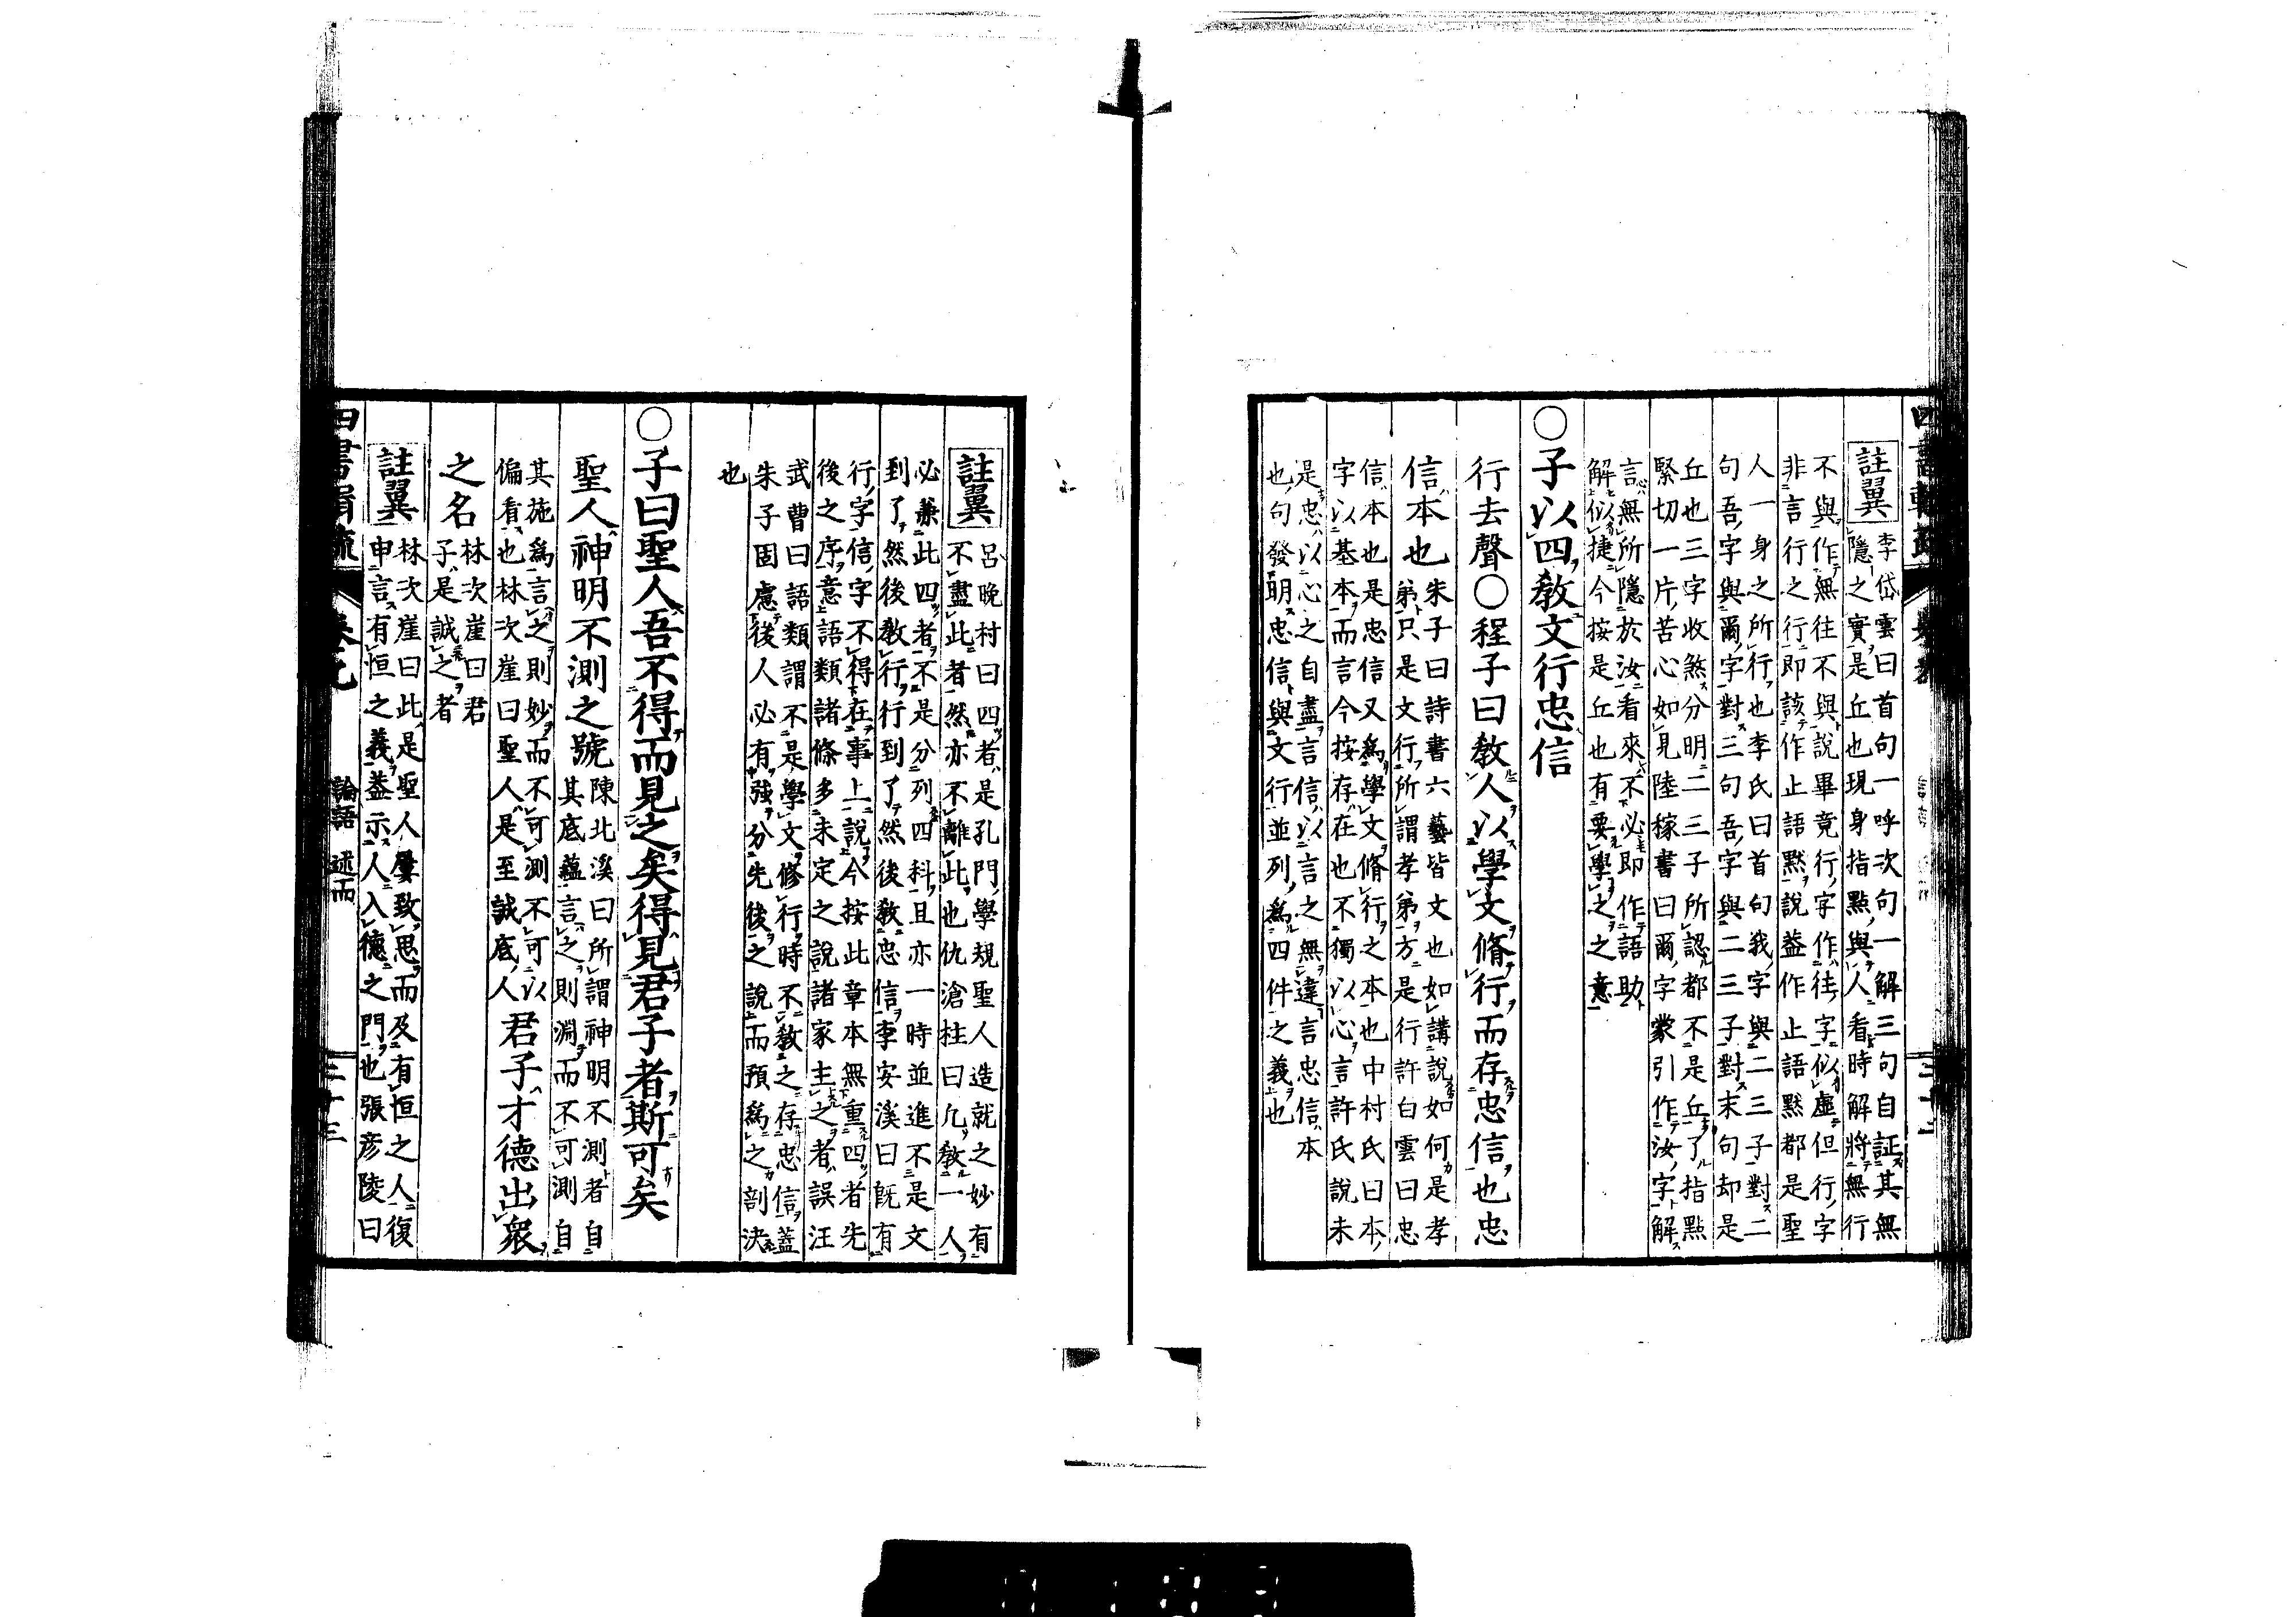 註翼
李岱雲曰首句一呼次句一解三句自証其無
隱之實是丘也現身指點與人看時解將無行
不與作無往不與說畢竟行字作往字似虛但行字
非言行之行即該作止語默說蓋作止語默都是聖
人一身之所行也李氏曰首句我字與二三子對二
句吾字與爾字對三句吾字與二三子對末句却是
丘也三字收煞分明二三子所認都不是丘了指點
緊切一片苦心如見陸稼書曰爾字蒙引作汝字解
言無所隱於汝看來不必即作語助
解似捷今按是丘也有要學之之意
○子以四教文行忠信
行去聲○程子曰教人以學文脩行而存忠信也忠
信本也
朱子曰詩書六藝皆文也如講說如何是孝
弟只是文行所謂孝弟方是行許白雲曰忠
信本也是忠信又為學文脩行之本也中村氏曰本
字以基本而言今按存在也不獨以心言許氏說未
是忠以心之自盡言信以言之無違言忠信本
也句發明忠信與文行並列為四件之義也
註翼
呂晚村曰四者是孔門學規聖人造就之妙有
不盡此者然亦不離此也仇滄柱曰凢教一人
必兼此四者不是分列四科且亦一時並進不是文
到了然後教行行到了然後教忠信李安溪曰既有
行字信字不得在事上說今按此章本無重四者先
後之序意語類諸條多未定之說諸家主之者誤汪
武曹曰語類謂不是學文修行時不教之存忠信蓋
朱子固慮後人必有強分先後之說而預為之剖決
也
○子曰聖人吾不得而見之矣得見君子者斯可矣
聖人神明不測之號
陳北溪曰所謂神明不測者自
其底蘊言之則淵而不可測自
其施為言之則妙而不可測不可以
偏看也林次崖曰聖人是至誠底人
君子才德出衆
之名
林次崖曰君
子是誠之者
註翼
林次崖曰此是聖人屢致思而及有恒之人復
申言有恒之義蓋示人入德之門也張彦陵曰
論語 述而